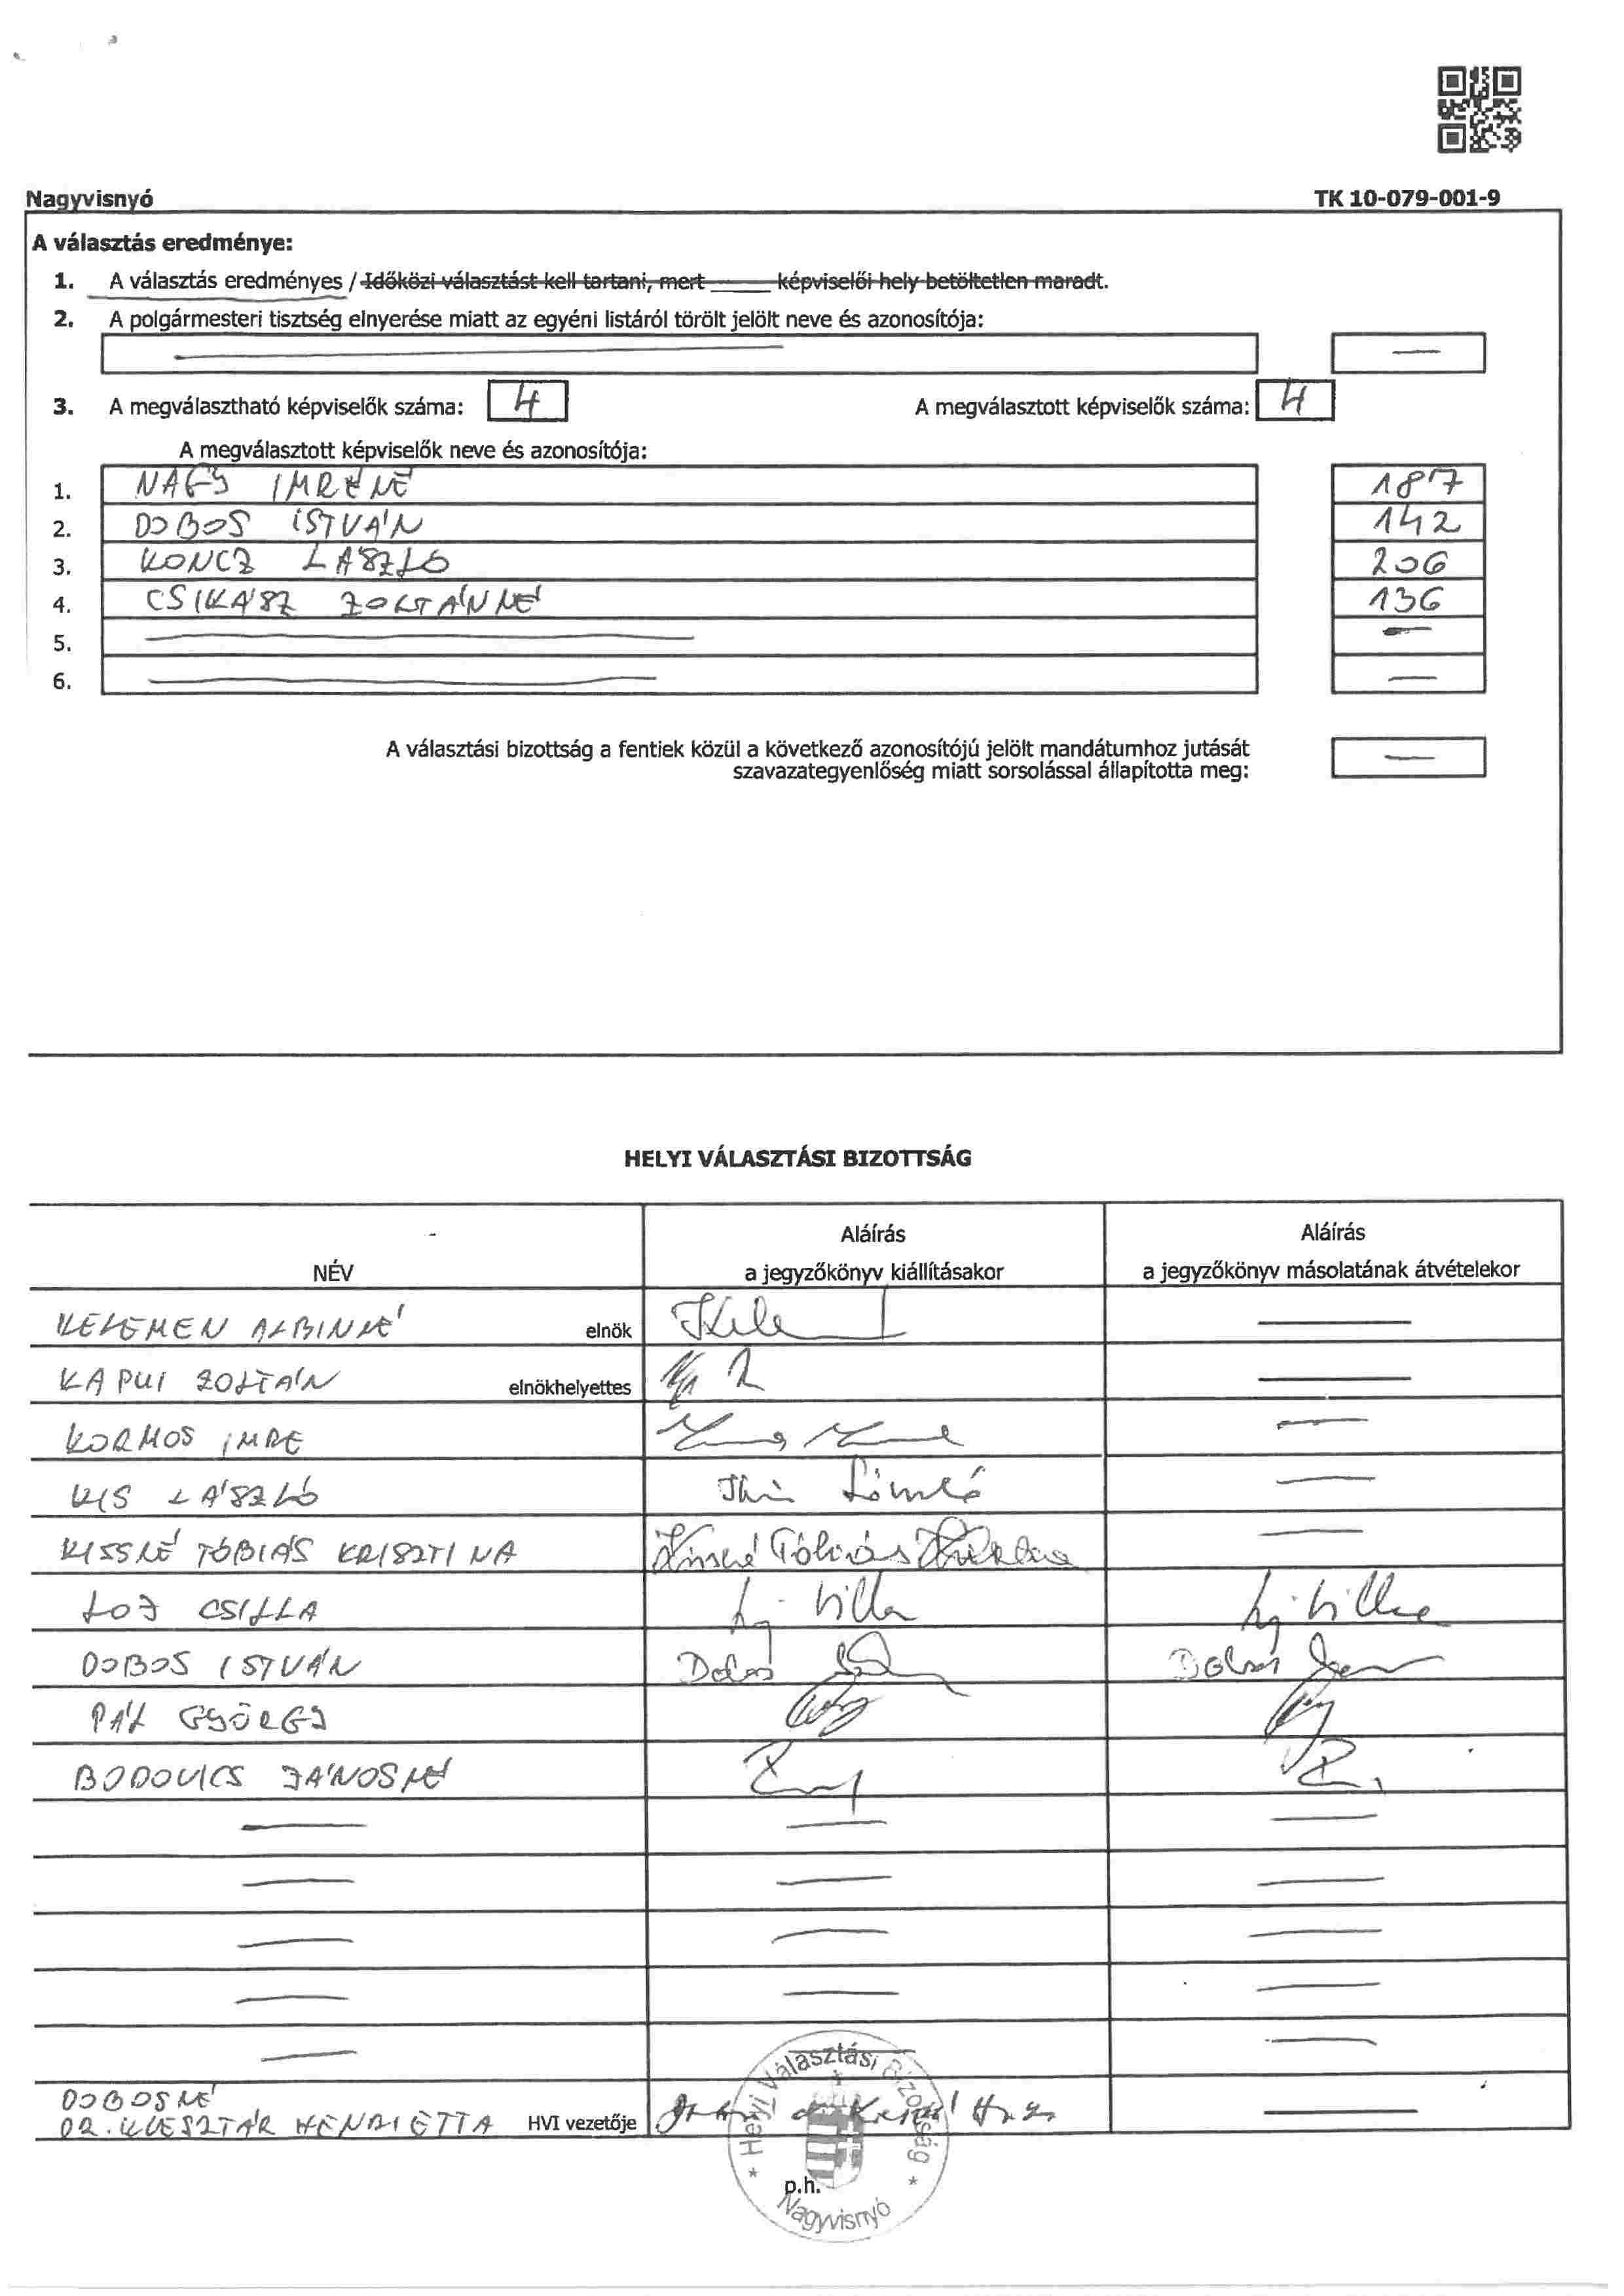 Nagyvisnyó TK 10-079-001-9
A választás eredménye:
1. A választás eredményes / Időközi választást kell tartani, mert _____ képviselői hely betöltetlen maradt.
2. A polgármesteri tisztség elnyerése miatt az egyéni listáról törölt jelölt neve és azonosítója:
3. A megválasztható képviselők száma: 4 A megválasztott képviselők száma: 4
A megválasztott képviselők neve és azonosítója:
1. NAGY IMRÉNÉ 187
2. DOBOS ISTVÁN 142
3. KONCZ LÁSZLÓ 206
4. CSIKÁSZ ZOLTÁNNÉ 136
5.
6.
A választási bizottság a fentiek közül a következő azonosítójú jelölt mandátumhoz jutását
szavazategyenlőség miatt sorsolással állapította meg:
HELYI VÁLASZTÁSI BIZOTTSÁG
NÉV Aláírás a jegyzőkönyv kiállításakor Aláírás a jegyzőkönyv másolatának átvételekor
KELEMEN ALBINNÉ elnök
KAPUI ZOLTÁN elnökhelyettes
KORMOS IMRE
KIS LÁSZLÓ
KISSNÉ TÓBIÁS KRISZTINA Kissné Tóbiás Krisztina
LOJ CSILLA
DOBOS ISTVÁN Dobos Dobos
PÁL GYÖRGY
BODOVICS JÁNOSNÉ
DOBOSNÉ
DR. HENRIETTA HVI vezetője
Helyi Választási Bizottság
p.h.
Nagyvisnyó